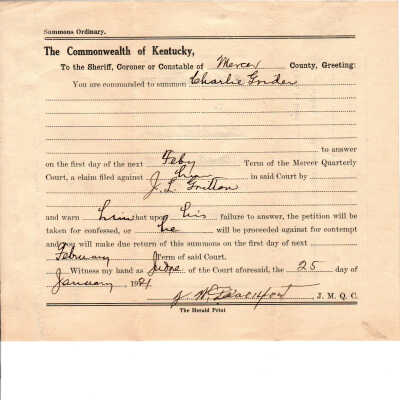 Summons Ordinary.
The Commonwealth of Kentucky,
To the Sheriff, Coroner or Constable of Mercer County, Greeting:
You are commanded to summon Charlie Grider
to answer
on the first day of the next Feby Term of the Mercer Quarterly
Court, a claim filed against him in said Court by
J. L.
and warn him that upon his failure to answer, the petition will be
taken for confessed, or he will be proceeded against for contempt
and you will make due return of this summons on the first day of next
February Term of said Court.
Witness my hand as Judge of the Court aforesaid, the 25 day of
January, 192
J. W. J. M. Q. C.
The Herald Print